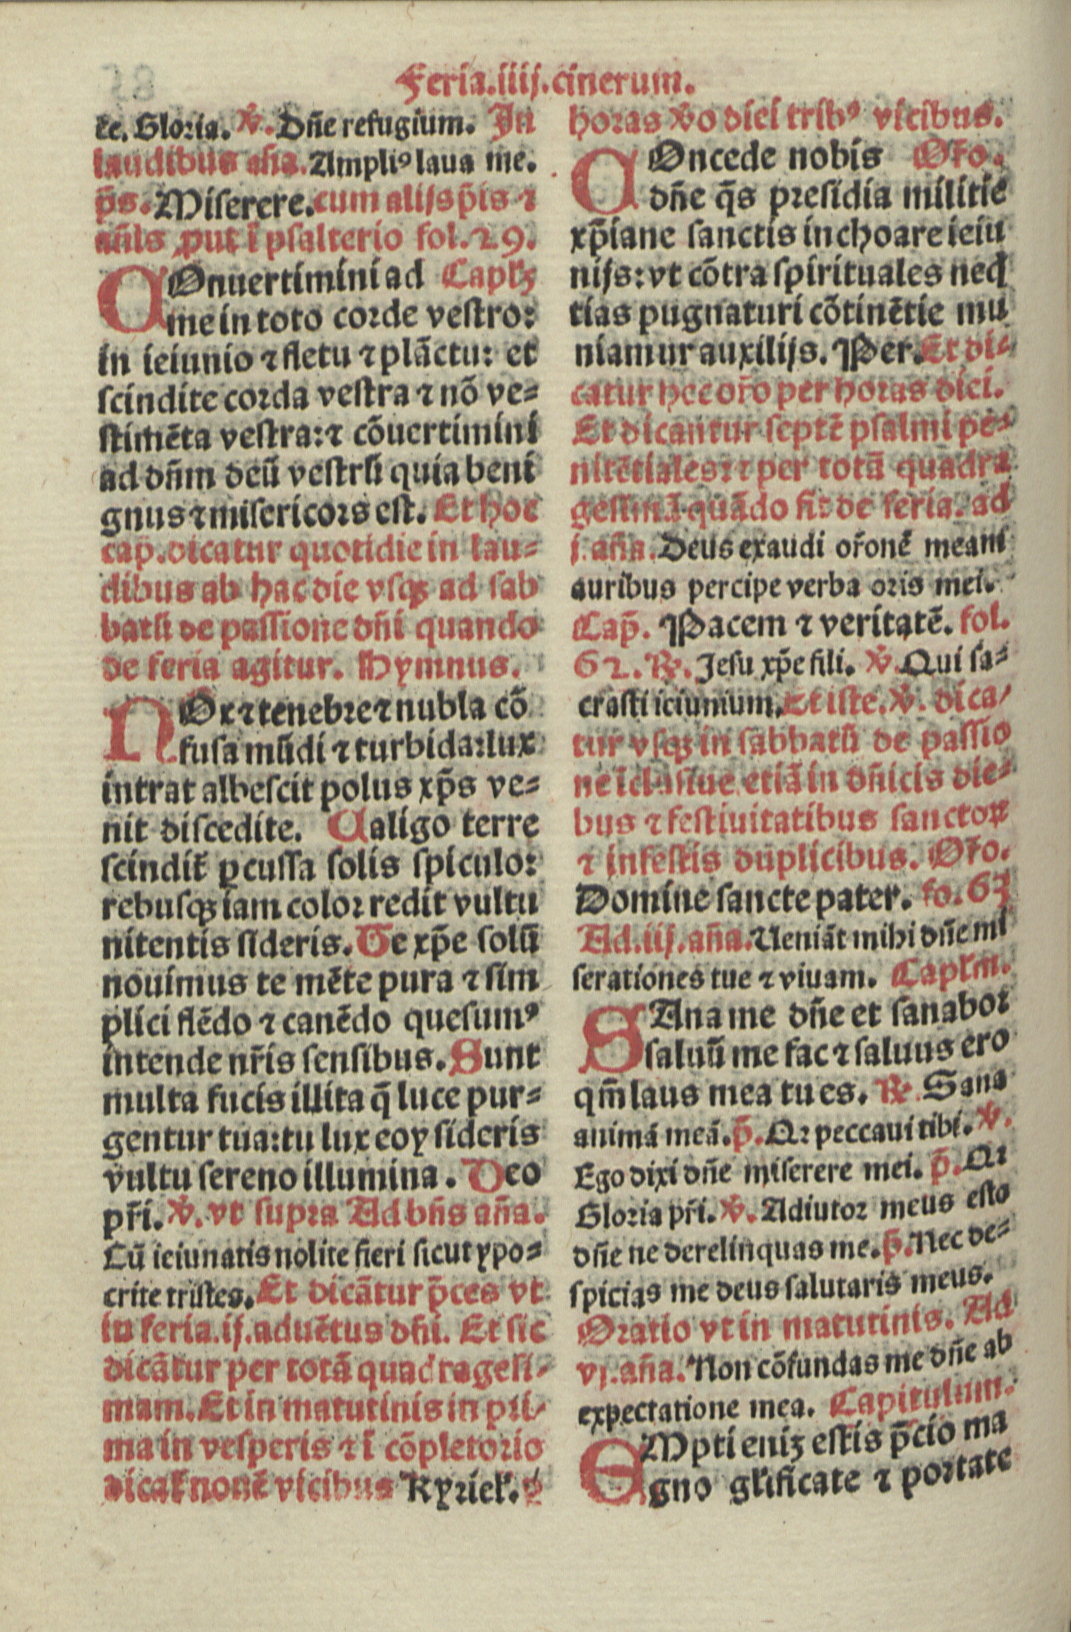 Feria.iiij.cinerum.
 te. Gloria. ℣. Dñe refugium. In
laudibus aña. Ampliꝰ laua me.
p̃s. Miserere. cum alijs p̃is ⁊
añis put ĩ psalterio fol. 29.
COnuertimini ad Capl'ꝫ
me in toto corde vestro:
in ieiunio ⁊ fletu ⁊ plãctu: et
scindite corda vestra ⁊ nõ ve-
stimẽta vestra: ⁊ cõuertimini
ad dñm deũ vestrũ quia beni
gnus ⁊ misericors est. Et hoc
cap̃. dicatur quotidie in lau-
dibus ab hac die vsqꝫ ad sab
batũ de passione dñi quando
de feria agitur. Hymnus.
NOx ⁊ tenebre ⁊ nubila cõ
fusa mũdi ⁊ turbida: lux
intrat albescit polus xp̃s ve-
nit discedite. Caligo terre
scindit̃ ꝑcussa solis spiculo:
rebusqꝫ iam color redit vultu
nitentis sideris. Te xp̃e solũ
nouimus te mẽte pura ⁊ sim
plici flẽdo ⁊ canẽdo quesumꝰ
intende nr̃is sensibus. Sunt
multa fucis illita q̃ luce pur-
gentur tua: tu lux eoꝝ sideris
vultu sereno illumina. Deo
pr̃i. ℣. vt supra Ad bñs aña.
Cũ ieiunatis nolite fieri sicut ypo-
crite tristes. Et dicãtur p̃ces vt
in feria.ij. aduẽtus dñi. Et sic
dicãtur per totã quadragesi-
mam. Et in matutinis in pri-
ma in vesperis ⁊ ĩ cõpletorio
dicat̃ nouẽ vicibus Kyriel'.
horas ỹo diei tribꝰ vicibus.
COncede nobis Or̃o.
dñe q̃s presidia militie
xp̃iane sanctis inchoare ieiu
nijs: vt cõtra spirituales neq̃
tias pugnaturi cõtinẽtie mu
niamur auxilijs. Per. Et di-
catur hec or̃o per horas diei.
Et dicantur septẽ psalmi pe-
nitẽtiales: ⁊ per totã quadra
gesimã quãdo fit de feria. ad
j. aña. Deus exaudi or̃onẽ meam
auribus percipe verba oris mei.
Cap̃. Pacem ⁊ veritatẽ. fol.
62. ℟. Jesu xp̃e fili. ℣. Qui sa-
crasti ieiunium. Et iste. ℣. dica-
tur vsqꝫ in sabbatũ de passio
ne ĩclusiue etiã in dñicis die-
bus ⁊ festiuitatibus sanctoꝝ
⁊ in festis duplicibus. Or̃o.
Domine sancte pater. fo. 63
Ad.iij. aña. Ueniãt mihi dñe mi
serationes tue ⁊ viuam. Capl'm.
SAna me dñe et sanabor
saluũ me fac ⁊ saluus ero
qm̃ laus mea tu es. ℟. Sana
animã meã. p̃. Qr peccaui tibi. ℣.
Ego dixi dñe miserere mei. p̃. Qr
Gloria pr̃i. ℣. Adiutor meus esto
dñe ne derelinquas me. p̃. Nec de-
spicias me deus salutaris meus.
Oratio vt in matutinis. Ad
vj. aña. Non cõfundas me dñe ab
expectatione mea. Capitulum.
EMpti enĩꝫ estis p̃cio ma
gno gl'ificate ⁊ portate